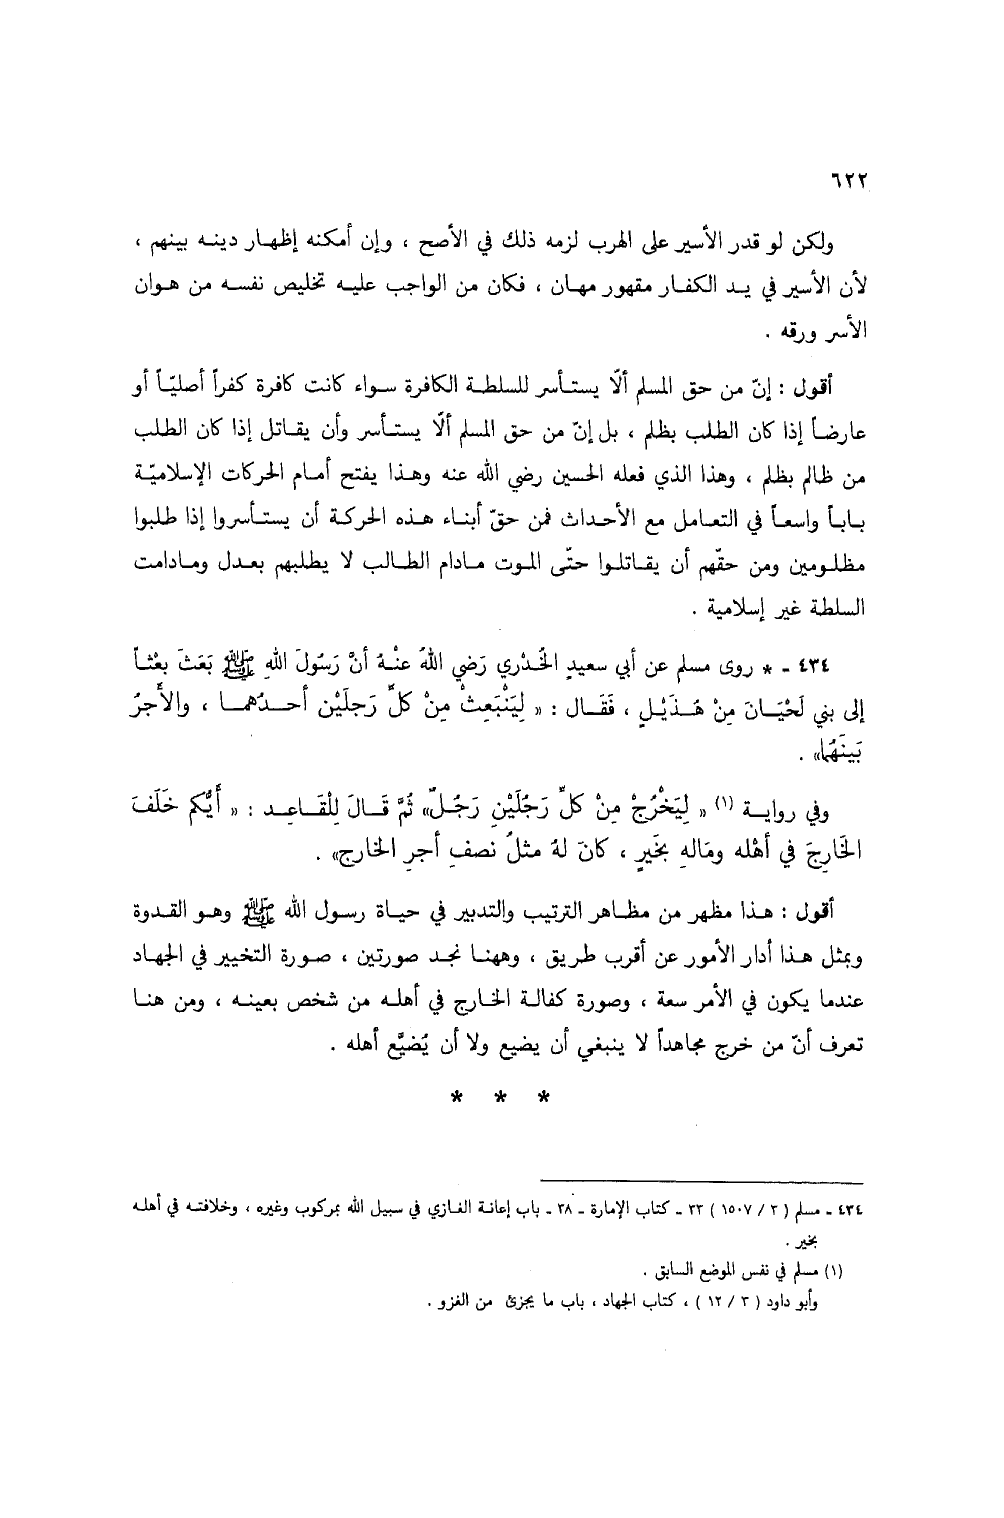 ٦٢٢
ولكن لو قدر الأسير على الهرب لزمه ذلك في الأصح ، وإن أمكنه إظهار دينه بينهم ،
لأن الأسير في يد الكفار مقهور مهان ، فكان من الواجب عليه تخليص نفسه من هوان
الأسر ورقه .
أقول : إنّ من حق المسلم ألّا يستأسر للسلطة الكافرة سواء كانت كافرة كفراً أصليّاً أو
عارضاً إذا كان الطلب بظلم ، بل إنّ من حق المسلم ألّا يستأسر وأن يقاتل إذا كان الطلب
من ظالم بظلم ، وهذا الذي فعله الحسين رضي الله عنه وهذا يفتح أمام الحركات الإسلاميّة
باباً واسعاً في التعامل مع الأحداث فمن حقّ أبناء هذه الحركة أن يستأسروا إذا طلبوا
مظلومين ومن حقّهم أن يقاتلوا حتّى الموت مادام الطالب لا يطلبهم بعدل ومادامت
السلطة غير إسلامية .
٤٣٤ - * روى مسلم عن أبي سعيدٍ الخُدْري رَضي اللهُ عنْهُ أنَّ رَسُولَ اللهِ ﷺ بَعَثَ بعْثاً
إلى بني لَحْيَـانَ مِنْ هُـذَيْـلٍ ، فَقَـالَ : « لِيَنْبَعِثْ مِنْ كلِّ رَجلَيْنِ أحـدُهُمـا ، والأَجرُ
بَينَهُما» .
وفي رواية (١) « لِيَخْرُجْ مِنْ كلِّ رَجُلَيْنِ رَجُلٌ» ثُمَّ قَـالَ لِلْقَـاعِـدِ : « أَيُّكم خَلَفَ
الخَارِجَ في أهْله ومَالهِ بخَيرٍ ، كانَ لهُ مثلُ نصفِ أجرِ الخارج» .
أقول : هذا مظهر من مظاهر الترتيب والتدبير في حياة رسول الله ﷺ وهو القدوة
وبمثل هذا أدار الأمور عن أقرب طريق ، وههنا نجد صورتين ، صورة التخيير في الجهاد
عندما يكون في الأمر سعة ، وصورة كفالة الخارج في أهله من شخص بعينه ، ومن هنا
تعرف أنّ من خرج مجاهداً لا ينبغي أن يضيع ولا أن يُضيَّع أهله .
* * *
٤٣٤ - مسلم ( ٣ / ١٥٠٧ ) ٣٣ - كتاب الإمارة - ٣٨ - باب إعانة الغازي في سبيل الله بمركوب وغيره ، وخلافته في أهله
بخير .
(١) مسلم في نفس الموضع السابق .
وأبو داود ( ٣ / ١٢ ) ، كتاب الجهاد ، باب ما يجزئ من الغزو .